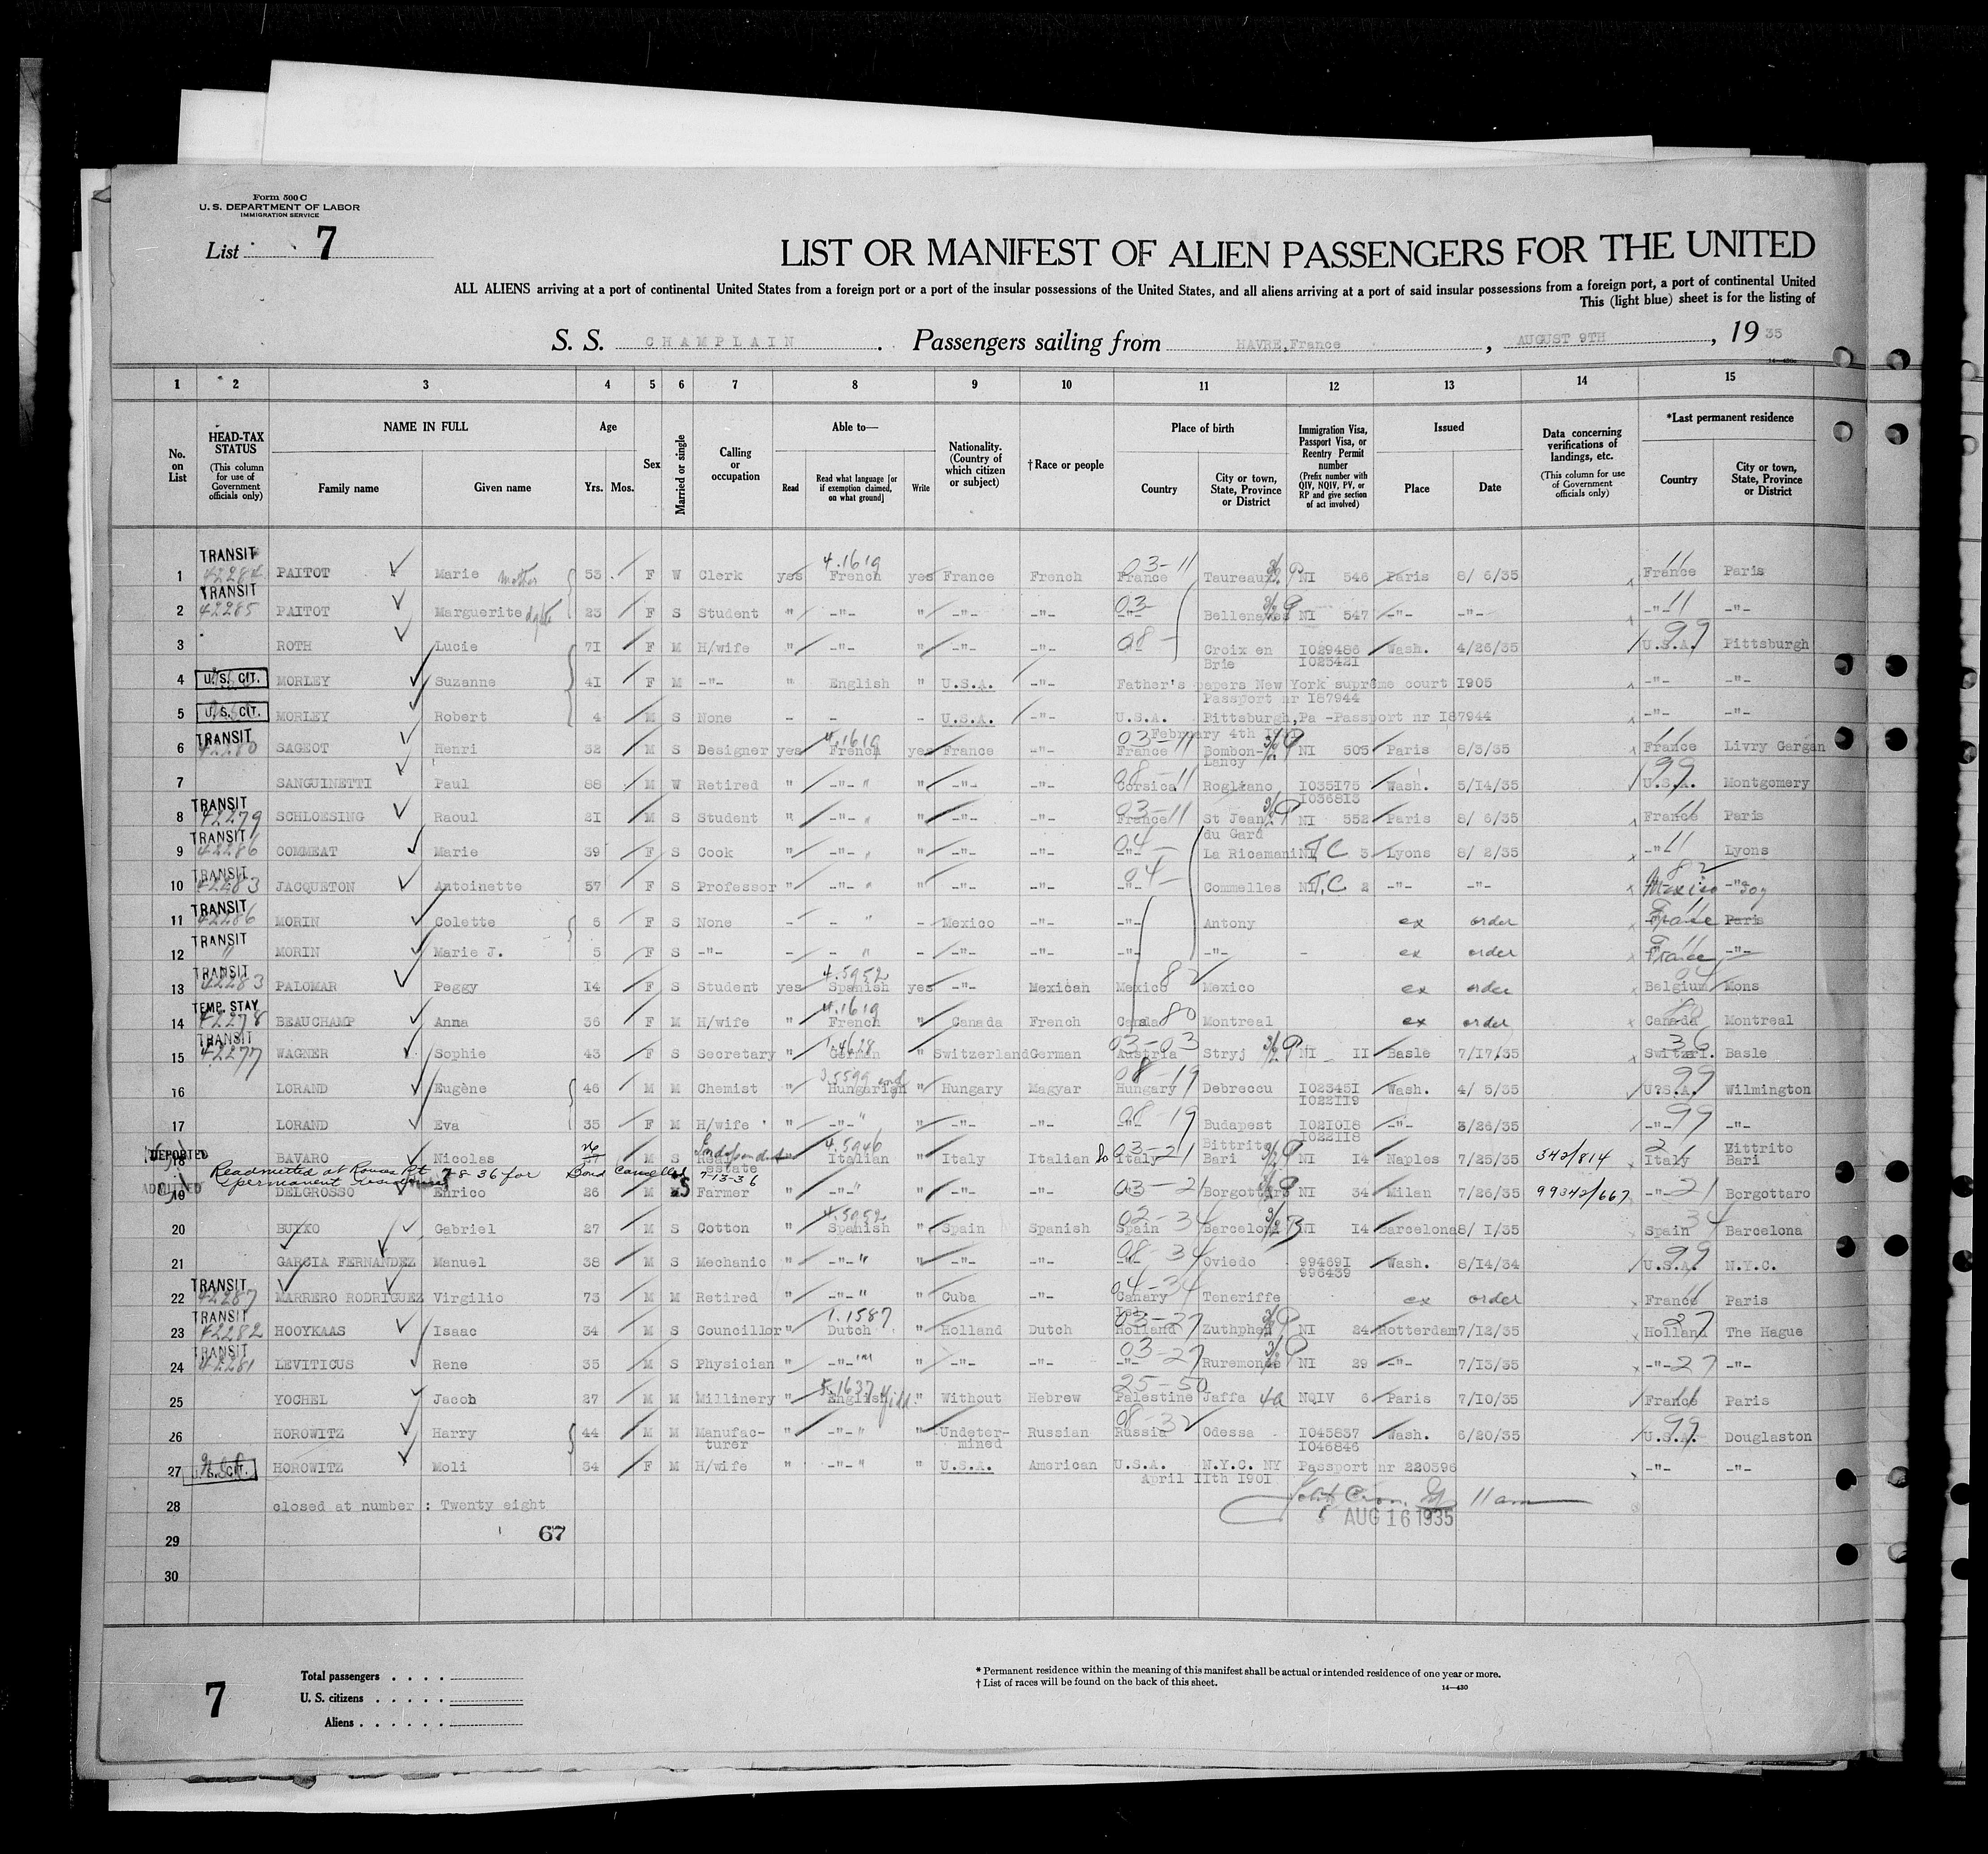 Form 500 C
U. S. DEPARTMENT OF LABOR
IMMIGRATION SERVICE
List 7
LIST OR MANIFEST OF ALIEN PASSENGERS FOR THE UNITED
ALL ALIENS arriving at a port of continental United States from a foreign port or a port of the insular possessions of the United States, and all aliens arriving at a port of said insular possessions from a foreign port, a port of continental United
This (light blue) sheet is for the listing of
S. S. CHAMPLAIN . Passengers sailing from HAVRE,France , AUGUST 9TH , 19 35
14—430
1 2 3 4 5 6 7 8 9 10 11 12 13 14 15
No. on List
HEAD-TAX STATUS (This column for use of Government officials only)
NAME IN FULL Family name Given name
Age Yrs. Mos.
Sex
Married or single
Calling or occupation
Able to— Read Read what language [or if exemption claimed, on what ground] Write
Nationality. (Country of which citizen or subject)
† Race or people
Place of birth Country City or town, State, Province or District
Immigration Visa, Passport Visa, or Reentry Permit number (Prefix number with QIV, NQIV, PV, or RP and give section of act involved)
Issued Place Date
Data concerning verifications of landings, etc. (This column for use of Government officials only)
*Last permanent residence Country City or town, State, Province or District
TRANSIT 4.1619 03-11 11
1 42284 PAITOT Marie mother 53 F W Clerk yes French yes France French France Taureaux NI 546 Paris 8/ 6/35 France Paris
TRANSIT 03- 11
2 42285 PAITOT Marguerite 23 F S Student " -"- " -"- -"- -"- Bellenaves NI 547 -"- -"- -"- -"-
3 ROTH Lucie 71 F M H/wife " -"- " -"- -"- 08- Croix en Brie 1029486 1025421 Wash. 4/26/35 U.S.A. 99 Pittsburgh
4 U. S. CIT. MORLEY Suzanne 41 F M -"- " English " U.S.A. -"- Father's papers New York suprême court 1905 -"- -"-
Passport nr 187944
5 U. S. CIT. MORLEY Robert 4 M S None - - - U.S.A. -"- U.S.A. Pittsburgh,Pa -Passport nr 187944 -"- -"-
TRANSIT 4.1619 03-11 11
6 42280 SAGEOT Henri 32 M S Designer yes French yes France -"- France Bombon-Lancy NI 505 Paris 8/3/35 France Livry Gargan
7 SANGUINETTI Paul 88 M W Retired " -"- " " -"- -"- Corsica 08-11 Rogliano 1035175 1036813 Wash. 5/14/35 U.S.A. 99 Montgomery
TRANSIT 03-11 11
8 42279 SCHLOESING Raoul 21 M S Student " -"- " " -"- -"- France St Jean du Gard NI 552 Paris 8/ 6/35 France Paris
TRANSIT 04- 11
9 42286 COMMEAT Marie 39 F S Cook " -"- " " -"- -"- -"- La Ricamani NI T.C 5 Lyons 8/ 2/35 -"- Lyons
TRANSIT 04- 82
10 42283 JACQUETON Antoinette 57 F S Professor " -"- " " -"- -"- -"- Commelles NI T.C 2 -"- -"- Mexico -"-
TRANSIT 11
11 42286 MORIN Colette 6 F S None - - " - Mexico -"- -"- Antony ex order France Paris
TRANSIT 11
12 " MORIN Marie J. 5 F S -"- - - " - -"- -"- -"- -"- - ex order France -"-
TRANSIT 4.5952 82
13 42283 PALOMAR Peggy 14 F S Student yes Spanish yes -"- Mexican Mexico Mexico ex order Belgium Mons
TEMP. STAY 4.1619 80
14 42278 BEAUCHAMP Anna 36 F M H/wife " French " Canada French Canada Montreal ex order Canada Montreal
TRANSIT 1.4628 03-03 36
15 42277 WAGNER Sophie 43 F S Secretary " German " Switzerland German Austria Stryj NI 11 Basle 7/17/35 Switzerl. Basle
16 LORAND Eugène 46 M M Chemist " Hungarian " Hungary Magyar Hungary 08-19 Debreccu 1023451 1022119 Wash. 4/ 5/35 U.S.A. 99 Wilmington
17 LORAND Eva 35 F M H/wife " -"- " " -"- -"- -"- 08-19 Budapest 1021018 1022118 -"- 3/26/35 -"- 99 -"-
DEPORTED 4.5946 03-21 21
18 BAVARO Nicolas M S Real estate " Italian " Italy Italian Italy Bittrito Bari NI 14 Naples 7/25/35 342/814 Italy Bittrito Bari
Readmitted at Rouses Pt 7-8-36 for permanent residence Bond cancelled 7-13-36
ADMITTED
19 DELGROSSO Enrico 26 M S Farmer " -"- " " -"- -"- -"- 03-21 Borgottaro NI 34 Milan 7/26/35 99342/667 -"- 21 Borgottaro
4.5952 02-34 34
20 BUIXO Gabriel 27 M S Cotton " Spanish " Spain Spanish Spain Barcelona NI 14 Barcelona 8/ 1/35 Spain Barcelona
21 GARCIA FERNANDEZ Manuel 38 M S Mechanic " -"- " " -"- -"- -"- 08-34 Oviedo 994691 996439 Wash. 8/14/34 U.S.A. 99 N.Y.C.
TRANSIT 04-34 11
22 42287 MARRERO RODRIGUEZ Virgilio 73 M M Retired " -"- " " Cuba -"- Canary Isl Teneriffe ex order France Paris
TRANSIT 1.1587 03-27 27
23 42282 HOOYKAAS Isaac 34 M S Councillor " Dutch " Holland Dutch Holland Zuthphen NI 24 Rotterdam 7/12/35 Holland The Hague
TRANSIT 03-27
24 42281 LEVITICUS Rene 35 M S Physician " -"- " -"- -"- -"- Ruremonde NI 29 -"- 7/13/35 -"- 27 -"-
5.1637 25-50 11
25 YOCHEL Jacob 27 M M Millinery " English Yidd. " Without Hebrew Palestine Jaffa 4a NQIV 6 Paris 7/10/35 France Paris
26 HOROWITZ Harry 44 M M Manufacturer " -"- " " Undetermined Russian Russia 08-32 Odessa 1045837 1046846 Wash. 6/20/35 U.S.A. 99 Douglaston
27 U. S. CIT. HOROWITZ Moli 34 F M H/wife " -"- " " U.S.A. American U.S.A. N.Y.C. NY Passport nr 220596 -"- -"-
April 11th 1901
28 closed at number : Twenty eight
11 am
AUG 16 1935
29 67
30
Total passengers . . . .
U. S. citizens . . . . .
Aliens . . . . . .
7
* Permanent residence within the meaning of this manifest shall be actual or intended residence of one year or more.
† List of races will be found on the back of this sheet.
14—430